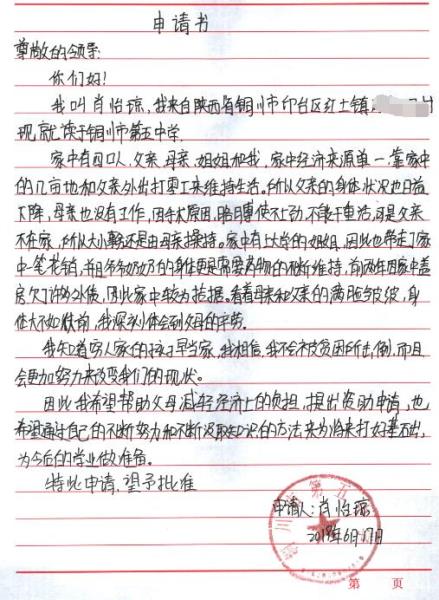 申请书
尊敬的领导:
你们好!
我叫肖怡琼,我来自陕西省铜川市印台区红土镇
现就读于铜川市第五中学.
家中有四口人,父亲,母亲,姐姐和我,家中经济来源单一,靠家中
的几亩地和父亲外出打零工来维持生活。所以父亲的身体状况也日益
下降,母亲也没有工作,因手术原因,胳膊使不上劲,不能干重活,可是父亲
不在家,所以大小事还是由母亲操持。家中有上大学的姐姐,因此也带走了家
中一笔花销,并且爷爷奶奶的身体更是需要药物的不断维持,前两年因家中盖
房欠了许多外债,因此家中较为拮据。看着母亲和父亲的满脸皱纹,身
体大不如从前,我深刻体会到父母的辛劳。
我知道穷人家的孩子早当家,我相信,我不会被贫困所击倒,而且
会更加努力来改变我们的现状。
因此我希望帮助父母减轻经济上的负担,提出资助申请,也
希望通过自己的不断努力和不断汲取知识的方法来为将来打好基础,
为今后的学业做准备。
特此申请,望予批准
申请人:肖怡琼
2019年6月17日
第 页